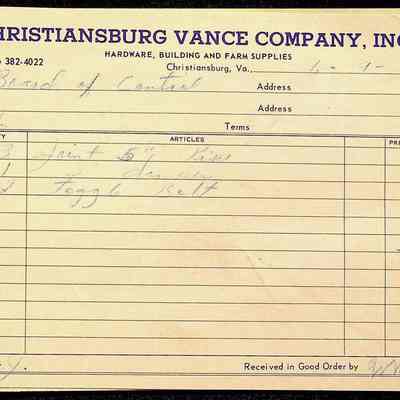 HRISTIANSBURG VANCE COMPANY, INC
HARDWARE, BUILDING AND FARM SUPPLIES
382-4022
Christiansburg, Va.,
Board of Control Address
Address
Terms
TY ARTICLES PR
3 Joint 5" Pipe
1
2 Toggle Bolt
Received in Good Order by